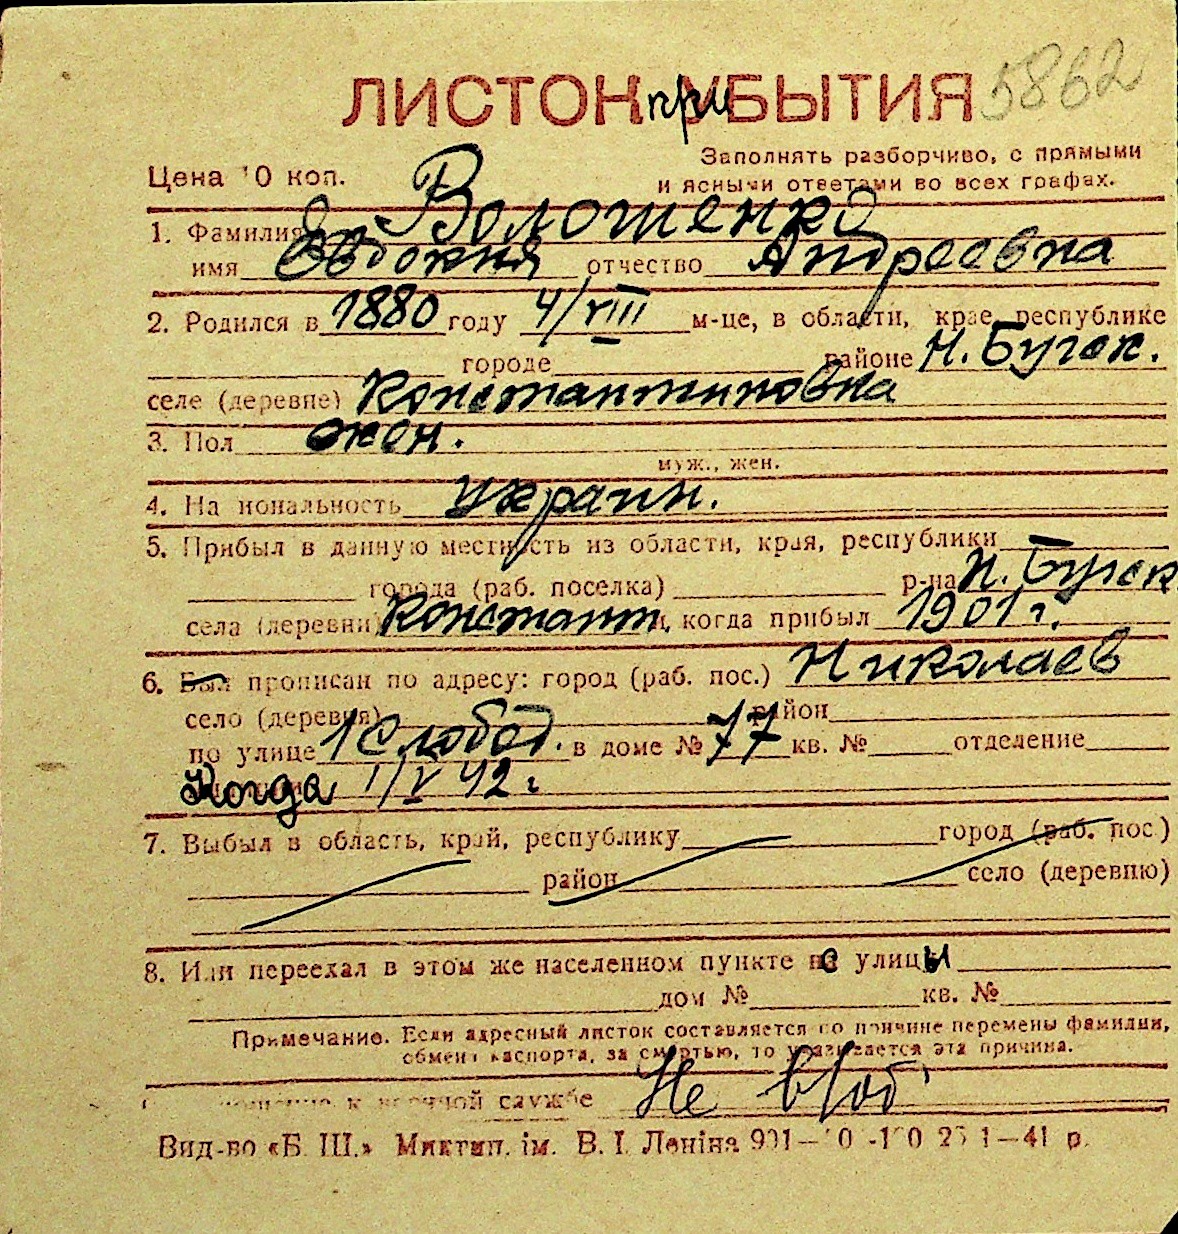 ЛИСТОК прибытия 5862
Заполнять разборчиво, с прямыми
Цена 10 коп. и ясными ответами во всех графах.
1. Фамилия Волошенко
имя Евдокия отчество Андреевна
2. Родился в 1880 году 4/VIII м-це, в области, крае, республике
городе районе Н. Бугск.
селе (деревне) Константиновка
3. Пол жен.
муж., жен.
4. На иональность украин.
5. Прибыл в данную местность из области, края, республики
города (раб. поселка) р-на Н. Бугск
села (деревни) Констант когда прибыл 1901 г.
6. Был прописан по адресу: город (раб. пос.) Николаев
село (деревня) район
по улице 1 Слобод. в доме № 77 кв. № отделение
Когда 1/V 42 г
7. Выбыл в область, край, республику город (раб. пос.)
район село (деревню)
8. Или переехал в этом же населенном пункте с улицы
дом № кв. №
Примечание. Если адресный листок составляется по причине перемены фамилии,
обмена паспорта, за смертью, то указывается эта причина.
к военной службе Не в/об
Вид-во «Б. Ш.» Миктип. ім. В. І. Леніна 1—41 р.